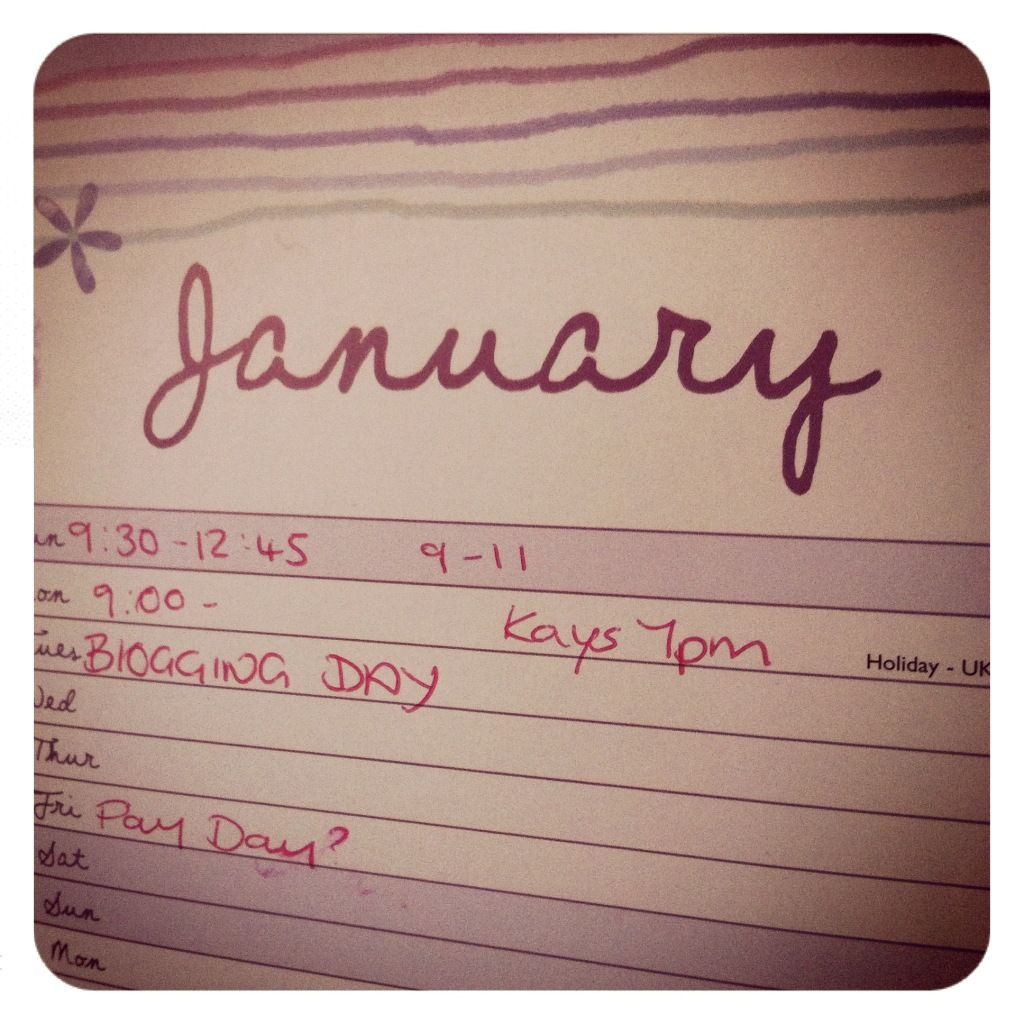 January
un 9:30 - 12:45 9 - 11
on 9:00 - Kays 7pm
Tues BlOGGING DAY Holiday - UK
Wed
Thur
Fri Pay Day?
Sat
Sun
Mon